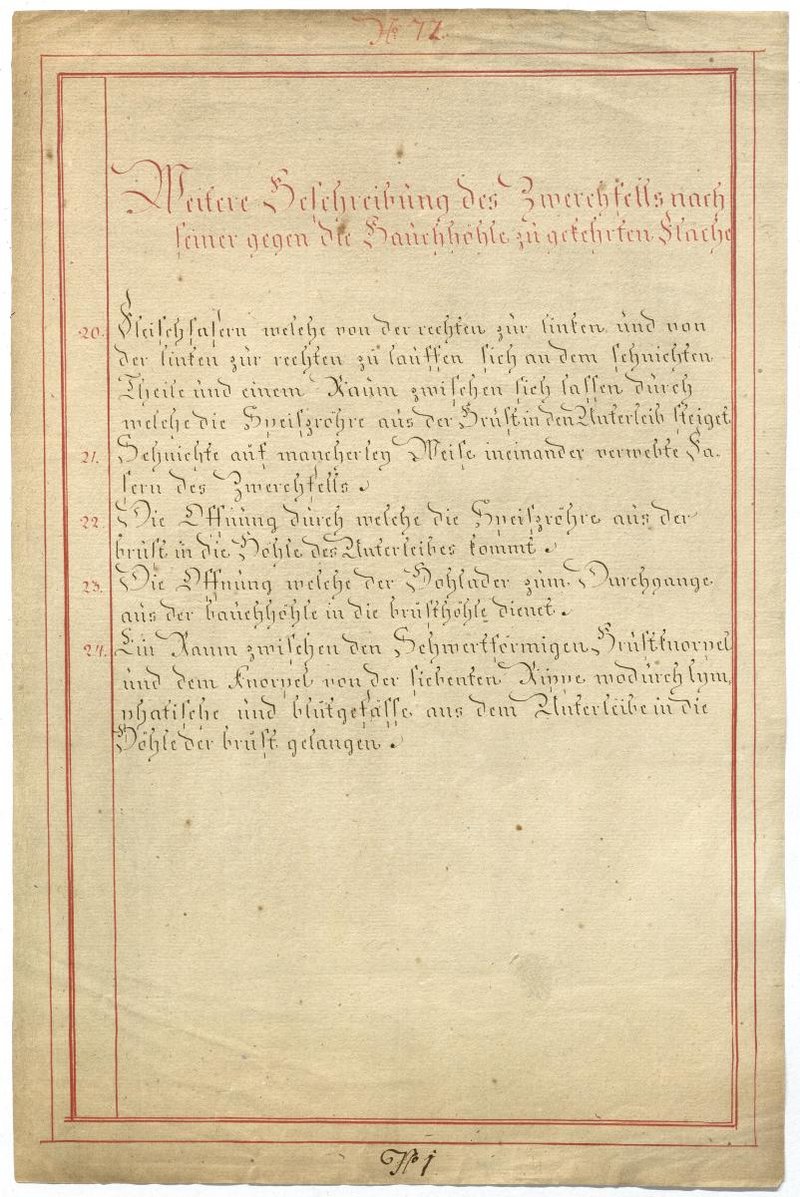 No. 72.
Weitere Beschreibung des Zwerchfells nach
seiner gegen die Bauchhöhle zu gekehrten Fläche
20. Fleischfasern welche von der rechten zur linken und von
der linken zur rechten zu lauffen sich an dem sehnichten
Theile und einem Raum zwischen sich lassen durch
welche die Speiszröhre aus der Brust in den Unterleib steiget
21. Sehnichte auf mancherley Weise ineinander verwebte Fa-
sern des Zwerchfells.
22. Die Öffnung durch welche die Speiszröhre aus der
brust in die Höhle des Unterleibes kommt.
23. Die Öffnung welche der Hohlader zum Durchgange
aus der bauchhöhle in die brusthöhle dienet.
24. Ein Raum zwischen den Schwertförmigen Brustknorpel
und dem Knorpel von der siebenten Rippe wodurch lym,
phatische und blutgefässe aus dem Unterleibe in die
Höhle der brust gelangen.
No 1